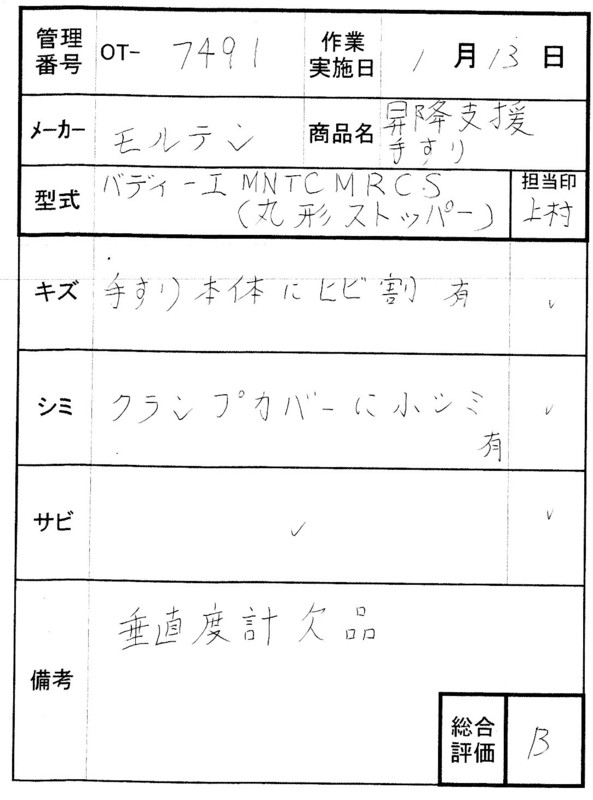 管理番号 OT- 7491 作業実施日 1月13日
メーカー モルテン 商品名 昇降支援手すり
型式 バディーI MNTCMRCS 担当印
(丸形ストッパー) 上村
キズ 手すり本体にヒビ割有 ✓
シミ クランプカバーに小シミ ✓
有
サビ ✓ ✓
備考 垂直度計欠品
総合評価 B